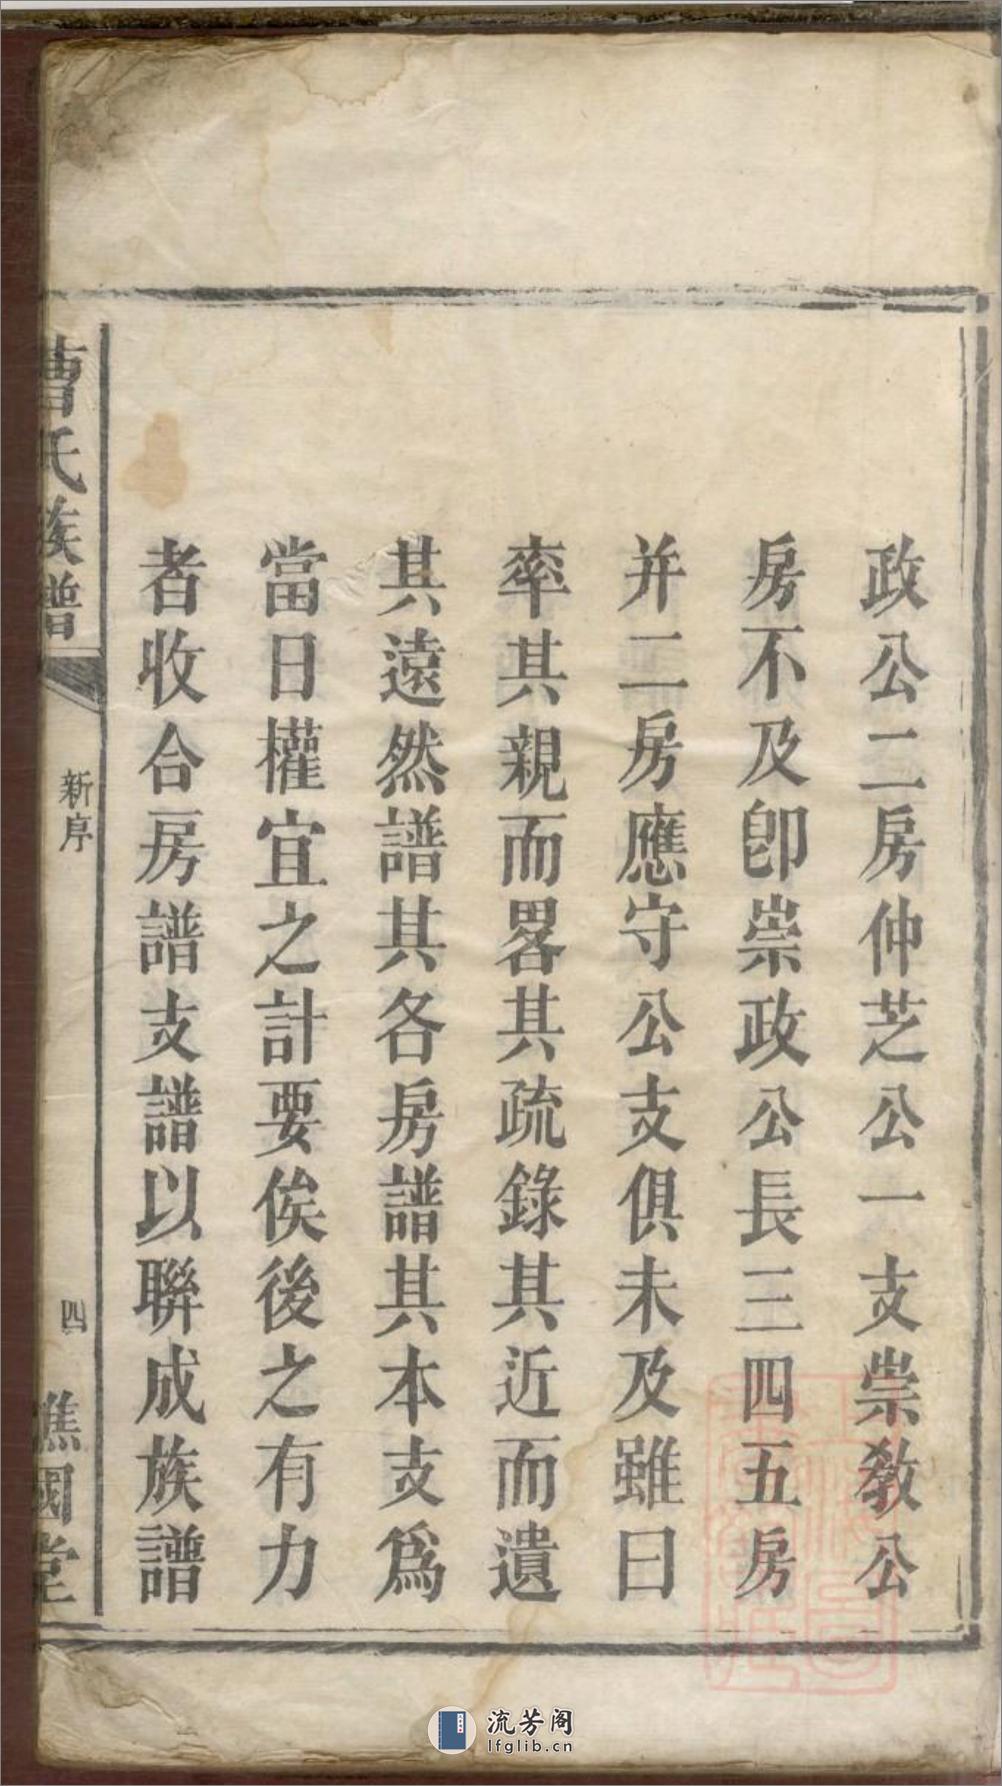 政公二房仲芝公一支崇敎公
房不及卽崇政公長三四五房
并二房應守公支俱未及雖曰
率其親而畧其疏錄其近而遺
其遠然譜其各房譜其本支爲
當日權宜之計要俟後之有力
者收合房譜支譜以聯成族譜
曹氏族譜
新序
四
譙國堂
流芳阁
lfglib.cn